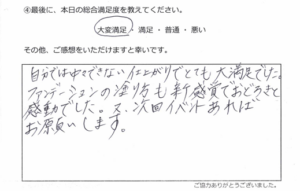 ④最後に、本日の総合満足度を教えてください。
大変満足 ・ 満足 ・ 普通 ・ 悪い
その他、ご感想をいただけますと幸いです。
自分では中々できない仕上がりでとても大満足でした。
ファンデーションの塗り方も新感覚でおどろきと
感動でした。又、次回イベントあれば
お願いします。
ご協力ありがとうございました。